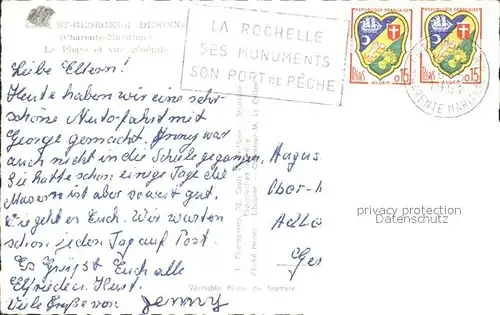 ST-GEORGES-d. DIDONNE
(Charente-Maritime)
La Plage et vue générale
LA ROCHELLE
SES MONUMENTS
SON PORT DE PÊCHE
0,15
ALGER
0,15
ALGER
CHARENTE MARITIME
Liebe Eltern!
Heute haben wir eine sehr
schöne Autofahrt mit
George gemacht. Jenny war
auch nicht in die Schule gegangen,
Sie hatte schon einige Tage die
Masern ist aber soweit gut.
Wie geht es Euch. Wir warten
schon jeden Tag auf Post.
Es Grüßt Euch alle
Elfrieden. Kurt.
Viele Grüße von Jenny
Augus
Ober-
Ger
privacy protection
watermark
Véritable Photo au bromure